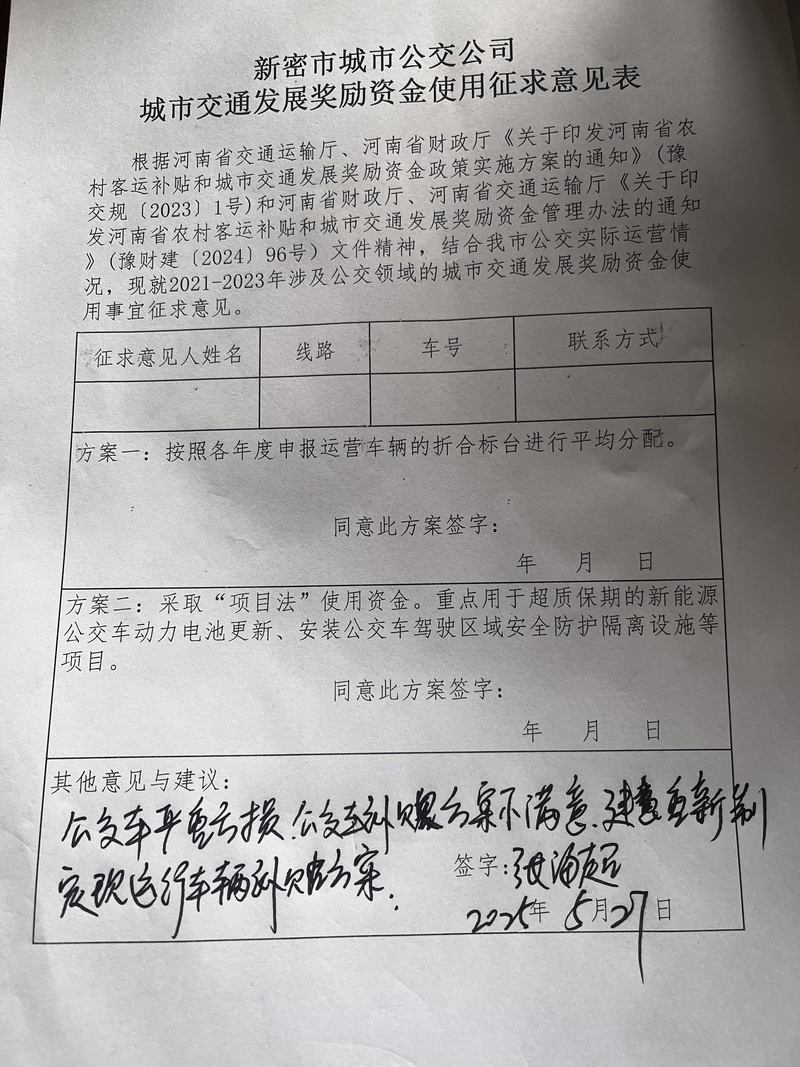 新密市城市公交公司
城市交通发展奖励资金使用征求意见表
根据河南省交通运输厅、河南省财政厅《关于印发河南省农
村客运补贴和城市交通发展奖励资金政策实施方案的通知》(豫
交规〔2023〕1号)和河南省财政厅、河南省交通运输厅《关于印
发河南省农村客运补贴和城市交通发展奖励资金管理办法的通知
》(豫财建〔2024〕96号）文件精神，结合我市公交实际运营情
况，现就2021-2023年涉及公交领域的城市交通发展奖励资金使
用事宜征求意见。
征求意见人姓名 线路 车号 联系方式
方案一：按照各年度申报运营车辆的折合标台进行平均分配。
同意此方案签字：
年 月 日
方案二：采取“项目法”使用资金。重点用于超质保期的新能源
公交车动力电池更新、安装公交车驾驶区域安全防护隔离设施等
项目。
同意此方案签字：
年 月 日
其他意见与建议：
公交车严重亏损.公交车补方案不满意.建意重新制
实现运行车辆补方案.
签字：张
2025年 5月27日